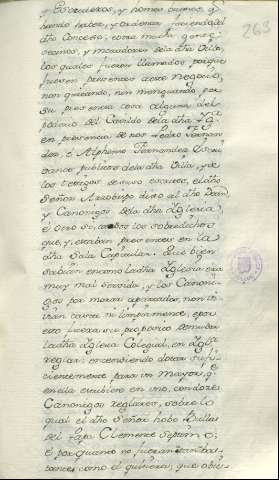 y Escuderos, y homes buenos, q.
han de haber, y ordenar facienda del
dho Concejo, como mucha gente,
vecinos, y moradores de la dha Villa,
los quales fueron llamados porque
fuesen presentes a este negocio,
non quitando, nin menguando por
su presencia cosa alguna del
poderio del Cavildo de la dha Yg.ª
en presencia de nos Pedro Fernan-
dez, é Alphonso Fernandez Escri-
banos publicos de la dha Villa, y de
los testigos de yuso escritos, el dho
Señor Arzobispo dixo al dho Dean
y Canonigos de la dha Yglesia,
é otro si, a todos los sobredichos
que y, estaban presentes en la
dha Sala Capitular. Que bien
sabian en como la dha Yglesia era
muy mal servida, y los Canoni-
gos por morar apartados, non vi-
vian casta ni limpiamente, e por
esto fuera su proposito de mudar
la dha Yglesia Colegial, en Ygl.ª
reglar; entendiendo dotar sufi-
cientemente para un mayor, q.
en ella estubiere en uno, con doze
Canonigos reglares, sobre lo
qual el dho Señor hobo Bullas
del Papa Clemente Septimo;
E por quanto no fueran tan bas-
tantes como él quisiera, que obie-
263